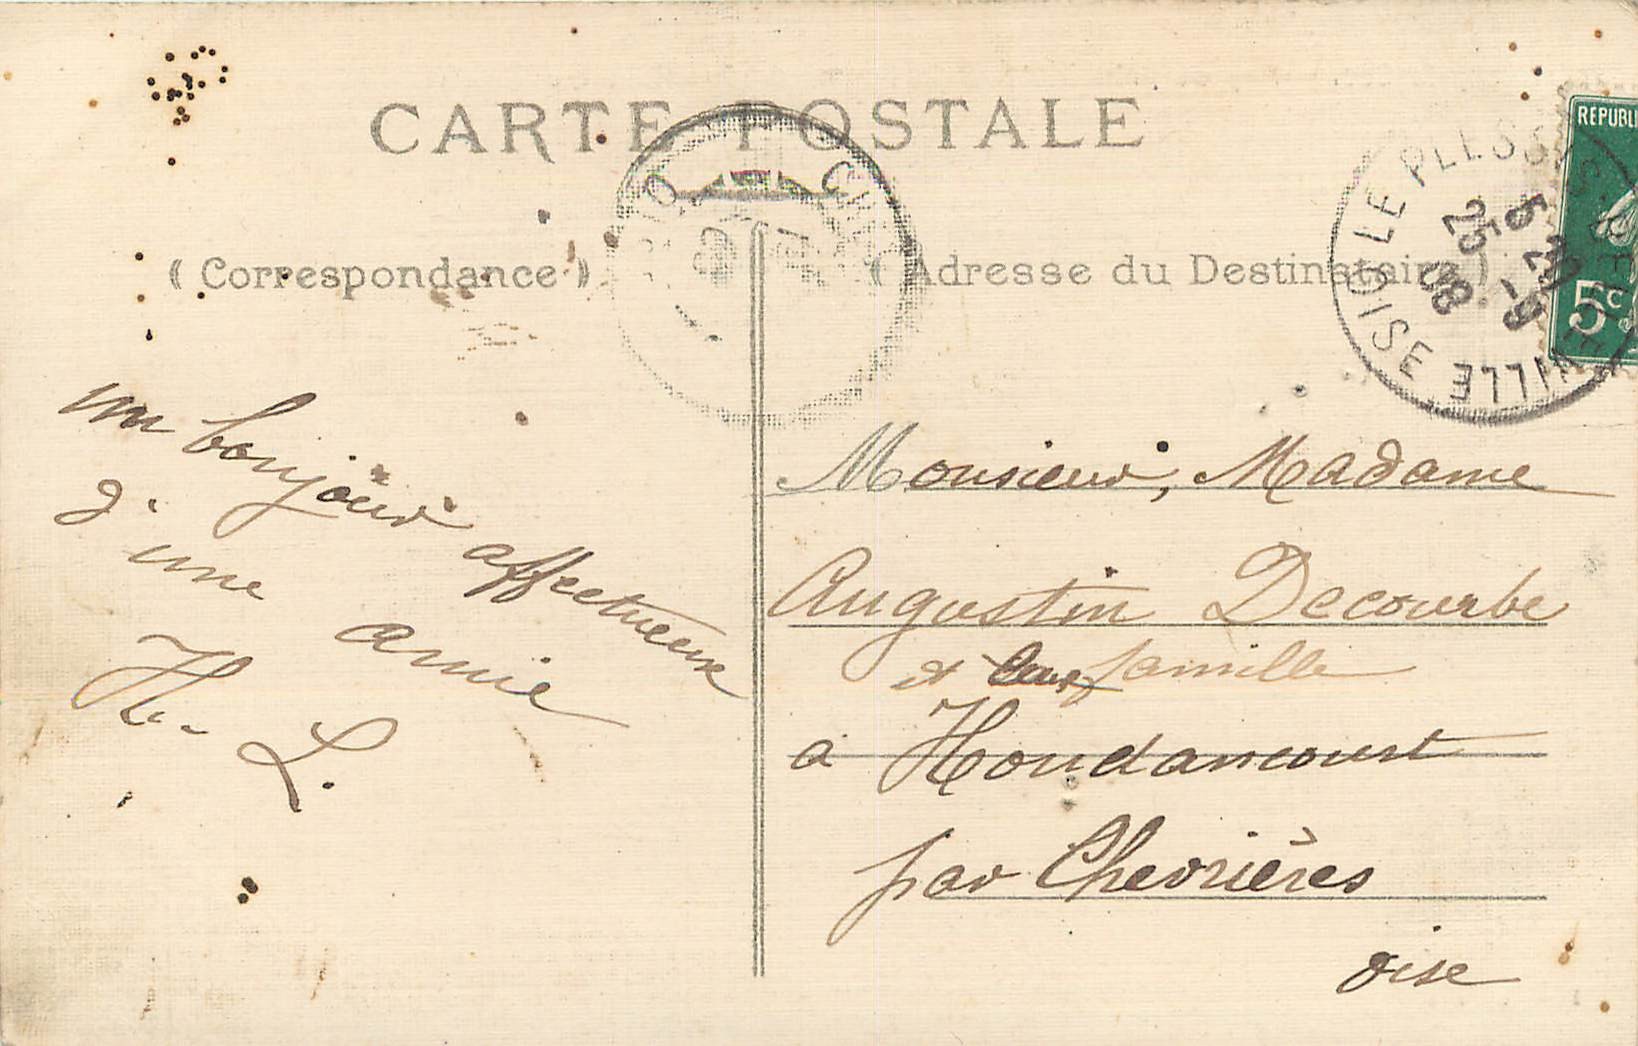 CARTE POSTALE
( Correspondance )
( Adresse du Destinataire )
REPUBLI
5c
LE PLESSIS BRION
5 25
25 -9
08
OISE
un bonjour affectueux
d'une amie
H. L.
Monsieur, Madame
Augustin Decourbe
et leur famille
à Houdancourt
par Chevrières
oise